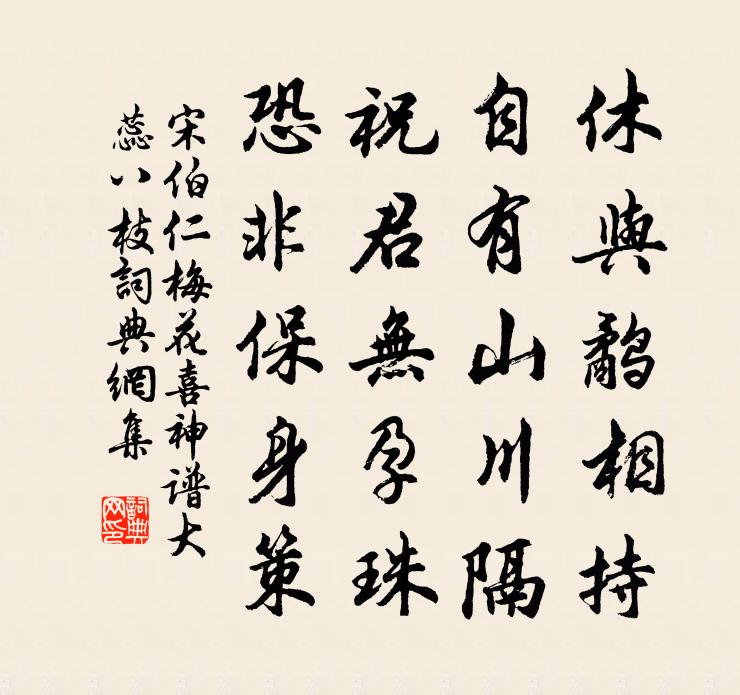 休與鷸相持
自有山川隔
祝君無孕珠
恐非保身策
宋伯仁梅花喜神谱大
蕊八枝詞典網集
詞典
网印